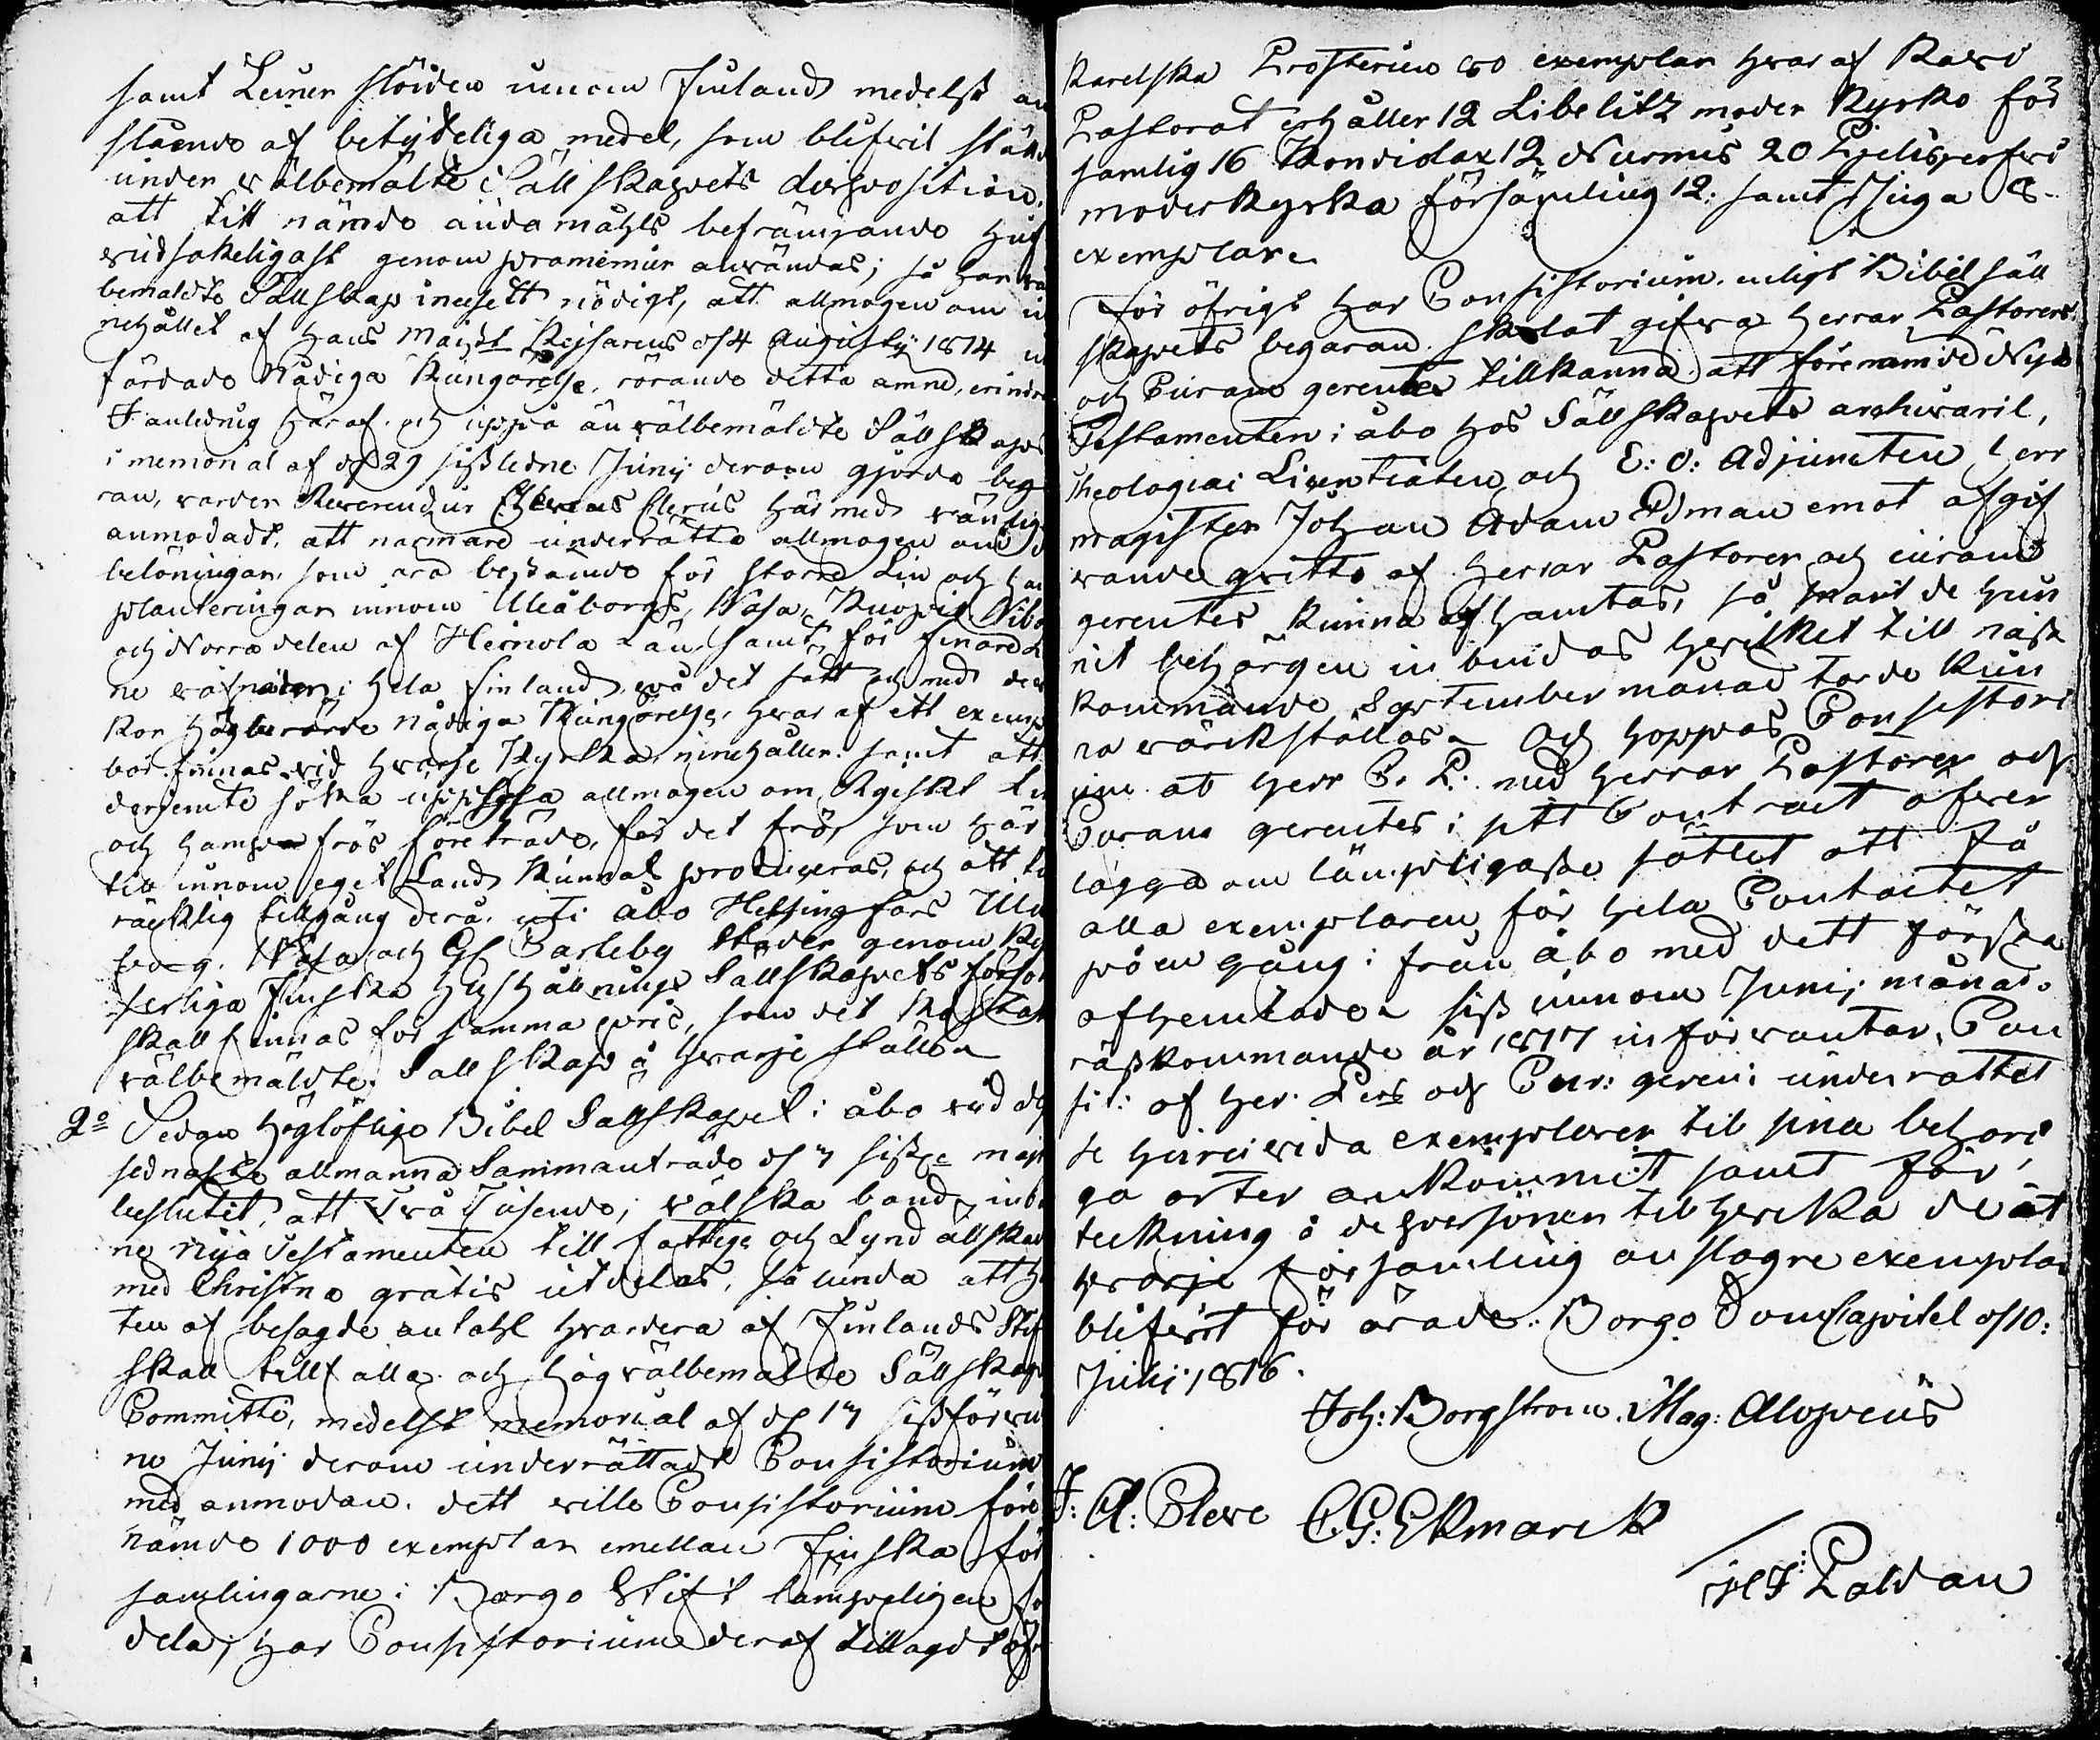 samt Leiner slöiden innom Finland medelst an
slående af betydeliga medel, som blifvit ställ
under välbemälte Sällskapets disposition,
att till nämde ändamåhls befrämjande huf
vudsakeligast genom præmier användas; så har vä
bemäldte Sällskap insett nödigt, att allmogen om in
nehållet af Hans Maij:ts Kejsarens d 4 Augusty 1814 ut
färdade Nådiga Kungörelse, rörande detta ämne, erindra
I anledning häraf och uppå än välbemäldte Sällskaps
i memorial af d 29 sistledne Junij derom gjorde beg
ran, varder Reverendus Clerus härmed vänlig
anmodadt, att närmare underrätta allmogen om d
belöningar, som äro bestämde för större Lin och ha
planteringar innom Uleåborgs, Wasa, Kuopio Wibo
och Norra delen af Heinola Län, samt för finare L
ne väfnader i hela Finland, på det sätt och med de
kor högberörde nådiga Kungörelse, hvaraf ett exemp
bör finnas vid hvarje Kyrka, innehåller samt att
derjemte söka upplysa allmogen om Ryskt Li
och hampefrös företräde, för det frö, som här
till innom eget Land kunnat produceras, och att ti
räcklig tillgång derå uti Åbo Helsingfors Ule
borg, Wasa och Gl Carleby Städer genom Ky
serliga Finska Hushållnings Sällskapets försor
skall finnas för samma pris, som det kostat
välbemäldte Sällskap å hvarje ställe
2:o Sedan Höglöflige Bibel Sällskapet i Åbo vid de
sednaste allmänna Sammanträde d 7 sistl Maji
beslutit, att två Tusende, i välska band, inb
ne nya Testamenten till fattige och Kyndällskan
med Christne gratis utdelas, så lunda att h
ten af besagde antahl hvardera af Finlands Stif
skall tillfalla och högvälbemälte Sällskap
Committé, medelst memorial af d 17 sistförvu
ne Junij derom underrättadt Consistorium
med anmodan, dett ville Consistorium före
nämde 1000 exemplar emellan Finska för
samlingarne i Borgo Stift lämpeligen fö
dela; har Consistorium deraf tillagdt öfv
Karelska Prosteriet 80 exemplar hvaraf Kavi
Pastorat erhåller 12 Libelitz moder Kyrko för
samlig 16 Kondiolax 12 Nurmis 20 Pjelisjerfvi
moderkyrka församling 12. samt Juga 8
exemplar.
För öfrigt har Consistorium, enligt Bibelsäll
skapets begäran skolat gifva Herrar Pastorers
och Curam gerentes tillkänna att förenämde Nya
Testamenten i Åbo hos Sällskapets archivarie,
Theologiæ Licentiaten och E: O: Adjuncten Herr
magister Johan Adam Edman emot afgif
vande qvitto af Herrar Pastorer och curam
gerentes kunna afhämtas, så snart de hun
nit behörigen inbindas hvilket till näst
kommande September månad torde kun
na värkställas. Och hoppas Consistori
um at Herr C. P. med Herrar Pastorer och
Curam gerentes i ptt Contract öfver
lägga om lämpligaste sättet att få
alla exemplaren för hela Contractet
på en gång ifrån Åbo med dett första
afhemtade. sist innom Junij månad
nästkommande år 1817 införväntar Con
sit: af Her. Pers och Cur: geren: underrättel
se huruvida exemplaren till sina behöri
ga orter ankommit samt för
teckning å de personer till hvilka de åt
hvarje församling anslagne exemplar
blifvit förärade. Borgo DomCapitel d 10:
Julij 1816.
Joh: Borgstrom. Mag: Alopæus
J: A: Cleve C.G: Ekmarck
P J: Paldan